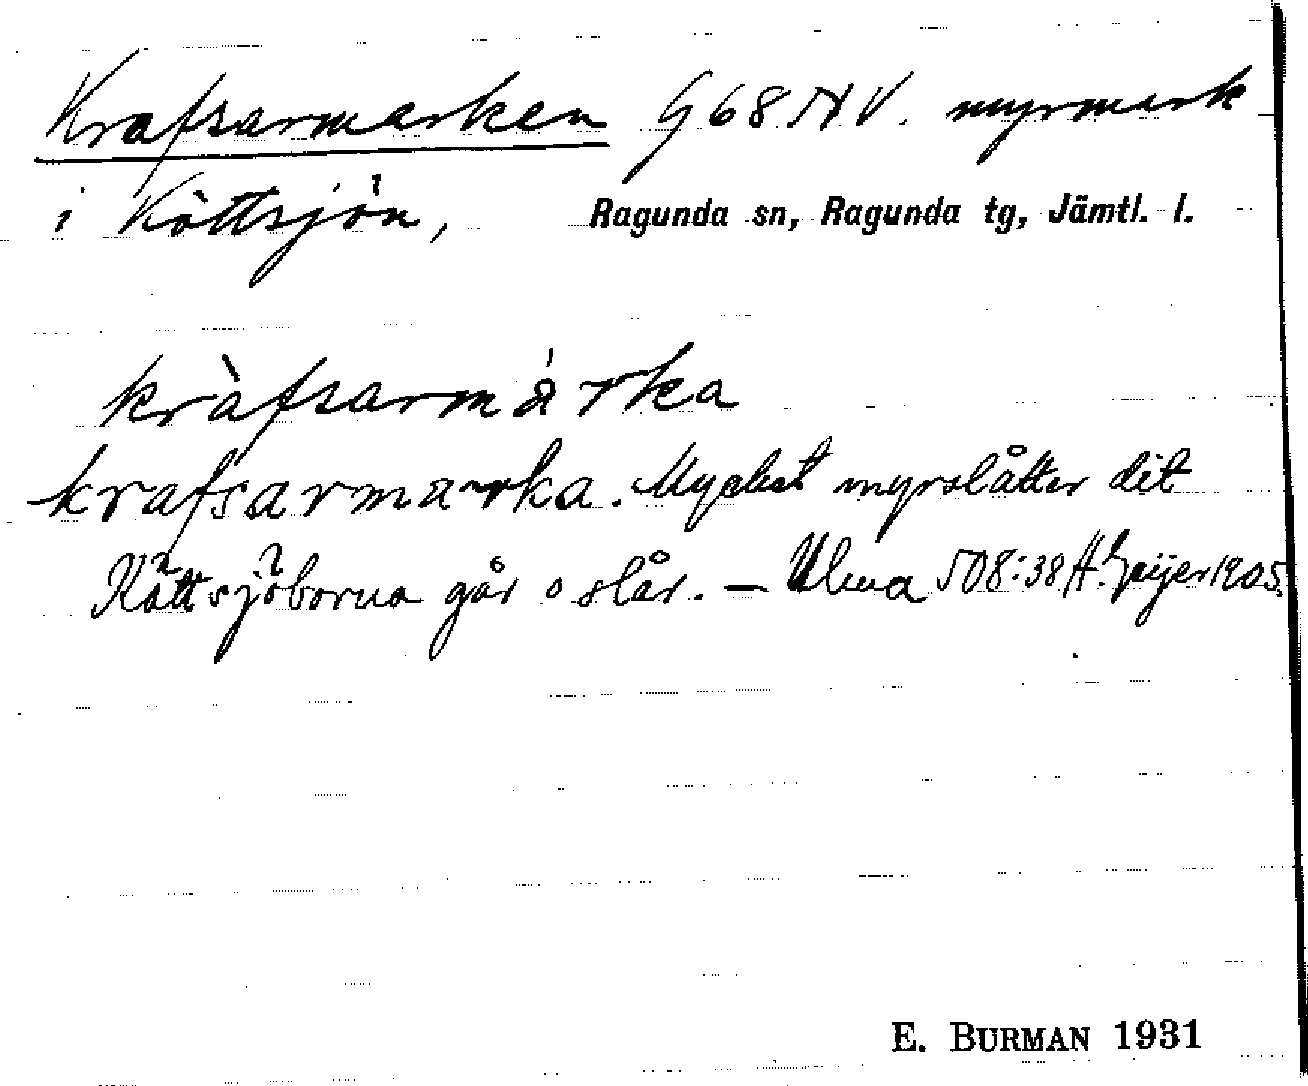 Krafsarmarken G68NV. myrmark
i Köttsjön, Ragunda sn, Ragunda tg, Jämtl. l.
kràfsarmárka
krafsarmarka. Mycket myrslåtter dit
Köttsjöborna går o slår. — Ulma 508:38 H. Geijer 1905.
E. BURMAN 1931